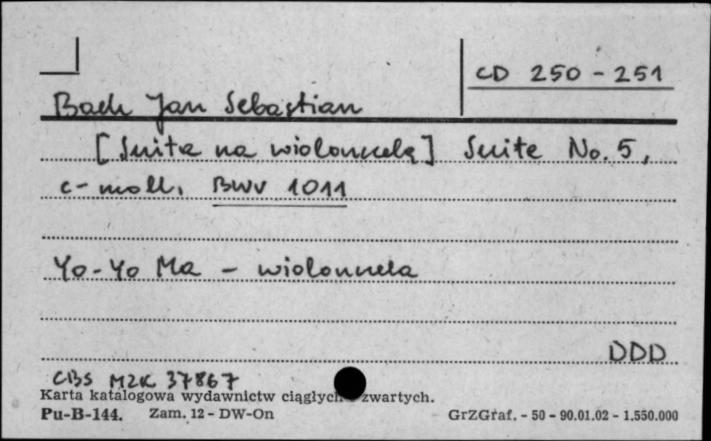 CD 250 - 251
Bach Jan Sebastian
[Suita na wiolonczelę] Suite No. 5,
c-moll, BWV 1011
Yo-Yo Ma - wiolonczela
DDD
CBS M2K 37867
Karta katalogowa wydawnictw ciągłych zwartych.
Pu-B-144. Zam. 12 - DW-On GrZGraf. - 50 - 90.01.02 - 1.550.000